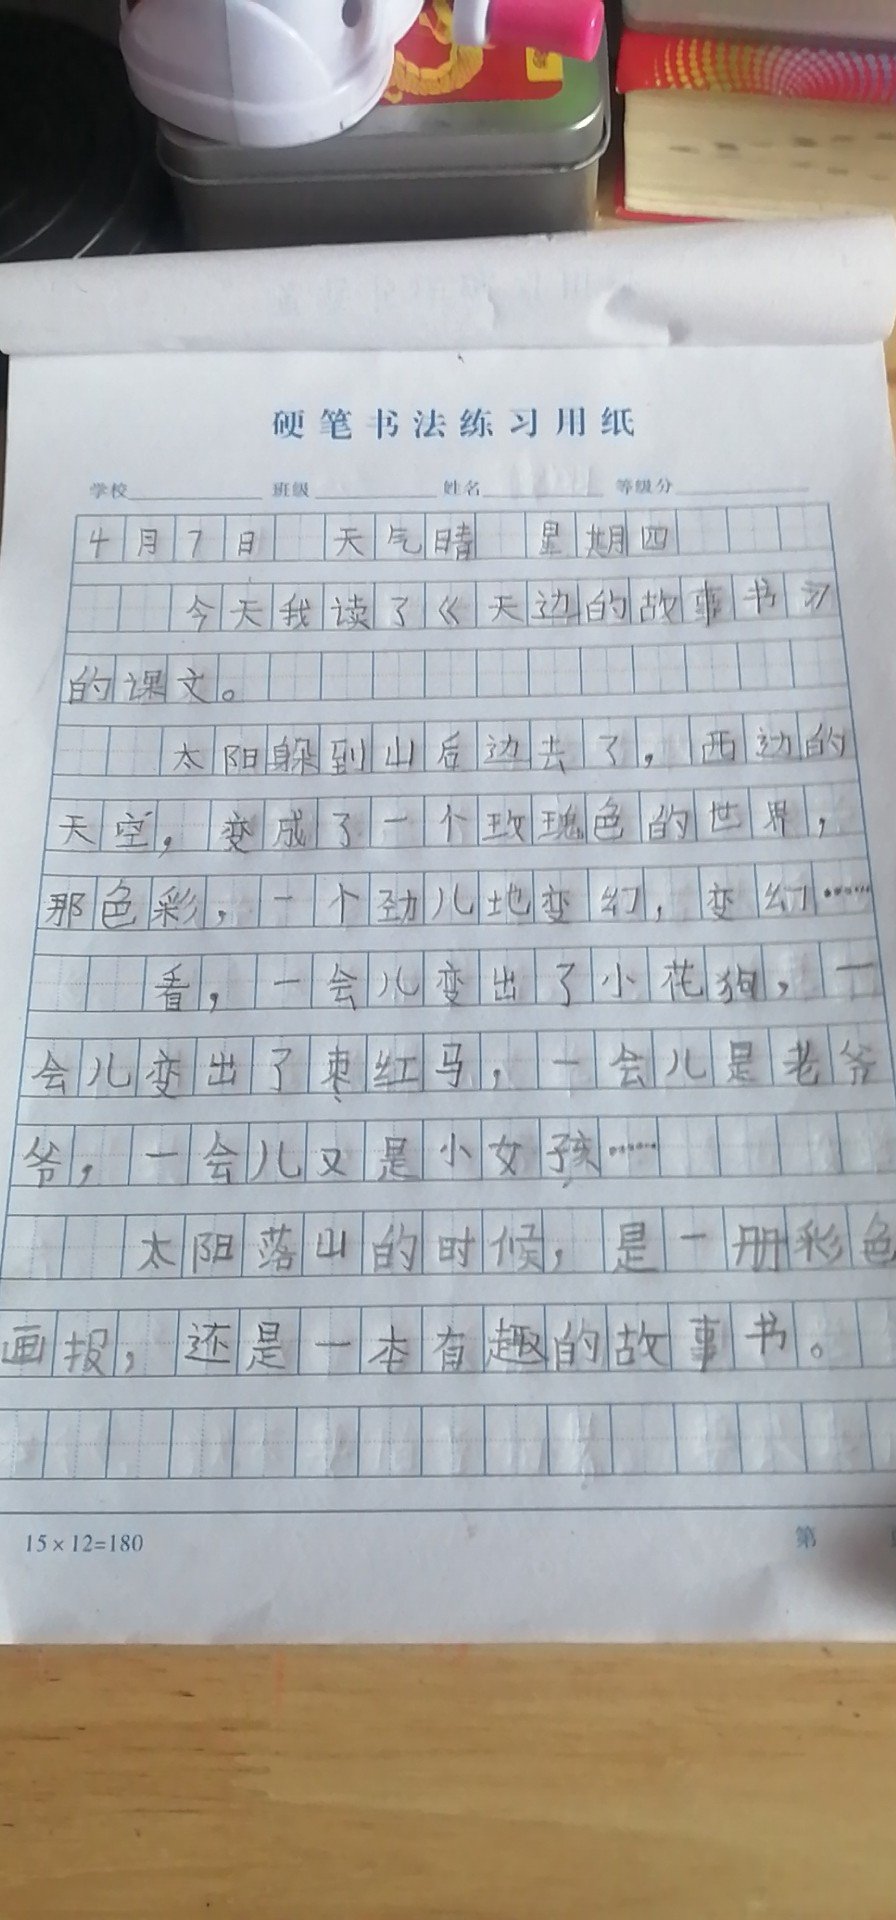 硬笔书法练习用纸
学校 班级 姓名 等级分
4月7日 天气晴 星期四
今天我读了《天边的故事书》
的课文。
太阳躲到山后边去了，西边的
天空，变成了一个玫瑰色的世界，
那色彩，一个劲儿地变幻，变幻……
看，一会儿变出了小花狗，一
会儿变出了枣红马，一会儿是老爷
爷，一会儿又是小女孩……
太阳落山的时候，是一册彩色
画报，还是一本有趣的故事书。
15×12=180
第